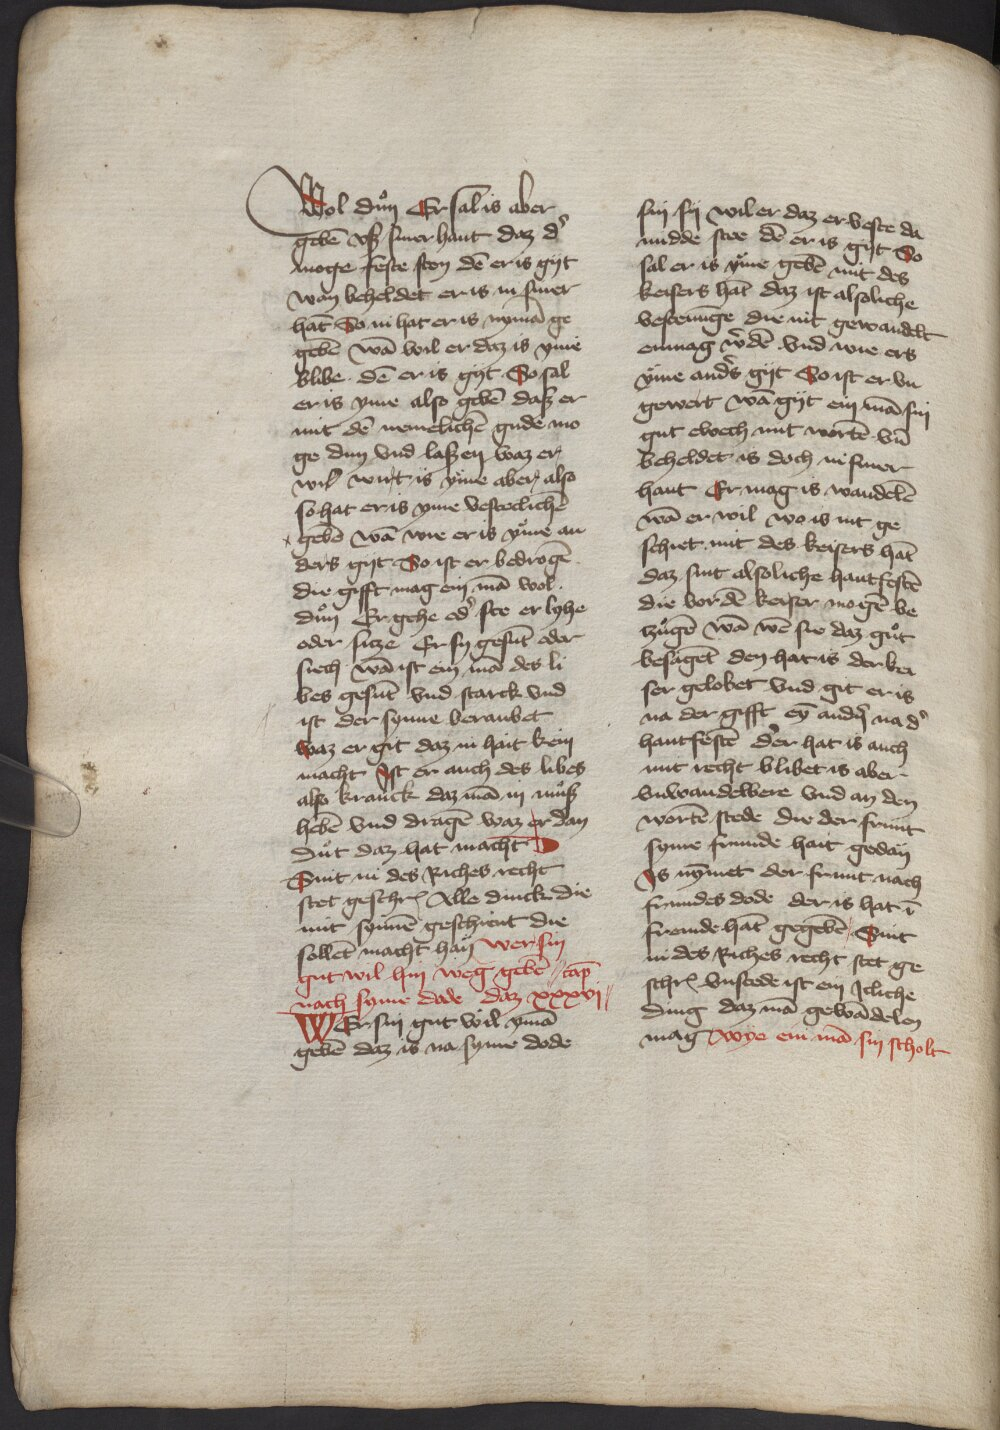 Wol důn Er sal is aber
geben vß siner hant daz d᷑
moge feste ston dē er is gijt
wan beheldet er is in siner
hāt So in hat er is nymā ge
geben wā wil er daz is yme
blibe dē er is gijt So sal
er is yme also gebē daß er
mit dē nemelichē gude mo
ge dun vnd laßen waz er
wil wirt is yme aber also
so hat er is yme vesteclichē
gebē wā wie er is yme an
ders gijt So ist er bedrogē
die gifft mag ein mā wol
důn Er gehe od᷑ ste er lyhe
oder sitze Er sy gesūt oder
siech wā ist ein mā des li
bes gesūt vnd starck vnd
ist der synne beraubet
waz er git daz in hait kein
macht Ist er auch des libes
also kranck daz mā in muß
heben vnd dragē waz er dan
důt daz hat macht
Sint in des Riches recht
stet geschr᷑ Alle dinck die
mit synnē geschient die
sollēt macht han Wer sin
gut wil hin weg gebē cap̄
nach syme dode daz xxxvi
WEr sin gut wil ymā
gebē daz is na syme dode
sin sij wil er daz er veste da
midde stee dē er is gijt So
sal er is yme gebē mit des
keisers hāt daz ist alsoliche
vestenūge die nit gewandelt
enmag w᷑dē vnd wie ers
yme and᷑s gijt So ist er vn
gewert wā gijt ein mā sin
gut etwech mit wortē vn̄
beheldet is doch in siner
hant Er mag is wandelē
wā er wil wo is nit ge
schiet mit des keisers hāt
daz sint alsoliche hantfestē
die vor dē keiser mogē be
tzůgē wā wē sie daz gůt
besagēt den hat is der kei
ser gelobet vnd git er is
na der gifft eȳ and᷑n na d᷑
hantfestē d᷑er hat is auch
mit recht blibet is aber
vnwandelbere vnd an den
wortē stede die der frunt
syme frunde hait gedan
Is nȳmet der frunt nach
frundes dode der is hat ī
fremde hāt gegebē Sint
in des Riches recht stet ge
schr᷑ vnstede ist ein Icliche
ding daz mā gewādelen
mag Wye ein mā sin scholt